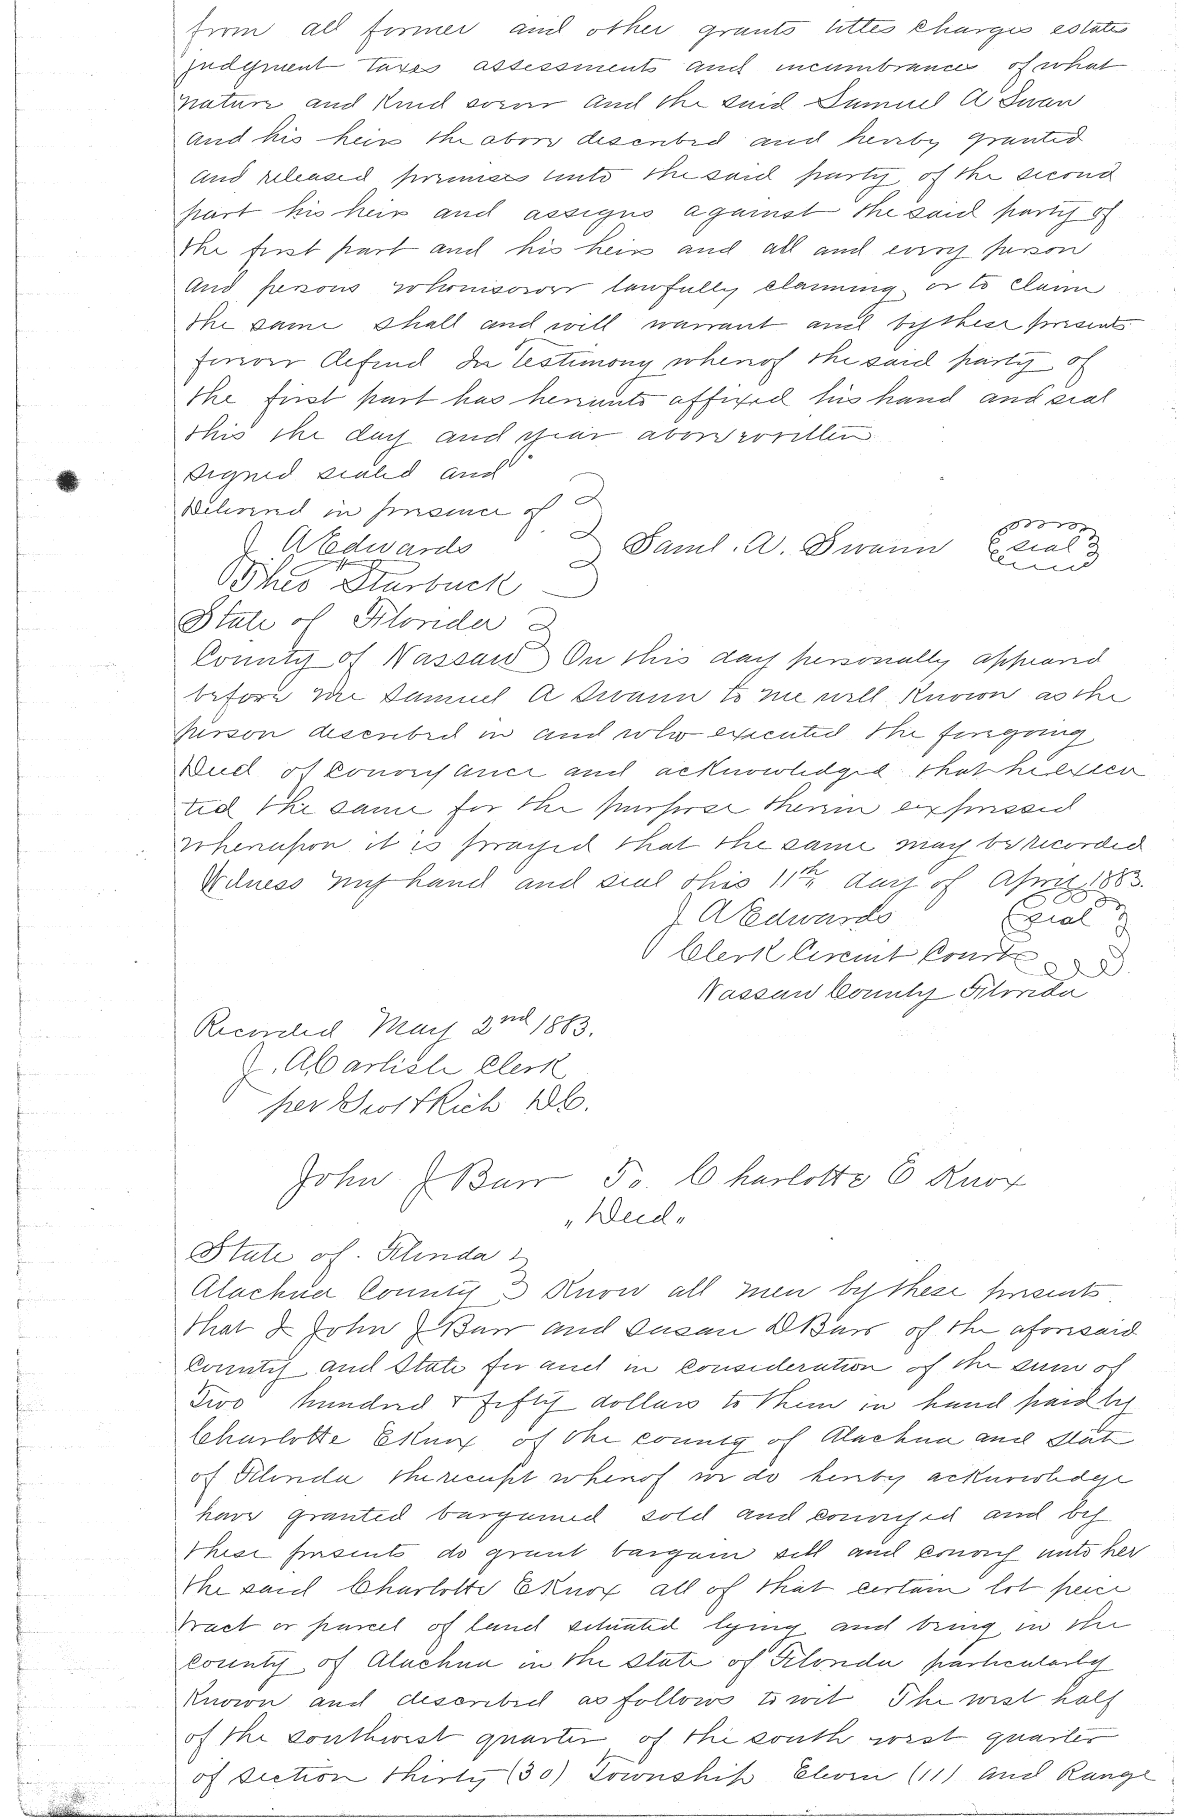 from all former and other grants tittes charges estates
judgment taxes assessments and incumbrances of what
nature and Kind soever and the said Samuel A Swan
and his heirs the above described and hereby granted
and released premises unto the said party of the second
part his heirs and assigns against the said party of
the first part and his heirs and all and every person
and persons whomsoever lawfully claiming or to claim
the same shall and will warrant and by these presents
forever defend In Testimony whereof the said party of
the first part has hereunto affixed his hand and seal
this the day and year above written
Signed sealed and
Delivered in presence of
J A Edwards Saml. A. Swann seal
Theo Starbuck
State of Florida
County of Nassau On this day personally appeared
before me Samuel A Swann to me well Known as the
person described in and who executed the foregoing
Deed of Conveyance and acknowledged that he execu
ted the same for the purpose therein expressed
whereupon it is prayed that the same may be recorded
Witness my hand and seal this 11th day of April 1883.
J A Edwards seal
Clerk Circuit Court
Nassau County Florida
Recorded May 2nd 1883.
J. A Carlisle Clerk
per D.C.
John J Barr To. Charlotte E Knox
"Deed"
State of Florida
Alachua County Know all men by these presents
that I John J Barr and Susan D Barr of the aforesaid
County and State for and in consideration of the sum of
Two hundred & fifty dollars to them in hand paid by
Charlotte E Knox of the county of Alachua and State
of Florida the receipt whereof we do hereby acknowledge
have granted bargained sold and conveyed and by
these presents do grant bargain sell and convey unto her
the said Charlotte E Knox all of that certain lot peice
tract or parcel of land situated lying and being in the
County of Alachua in the State of Florida particularly
Known and described as follows to wit The west half
of the southwest quarter of the south west quarter
of Section thirty (30) Township Eleven (11) and Range